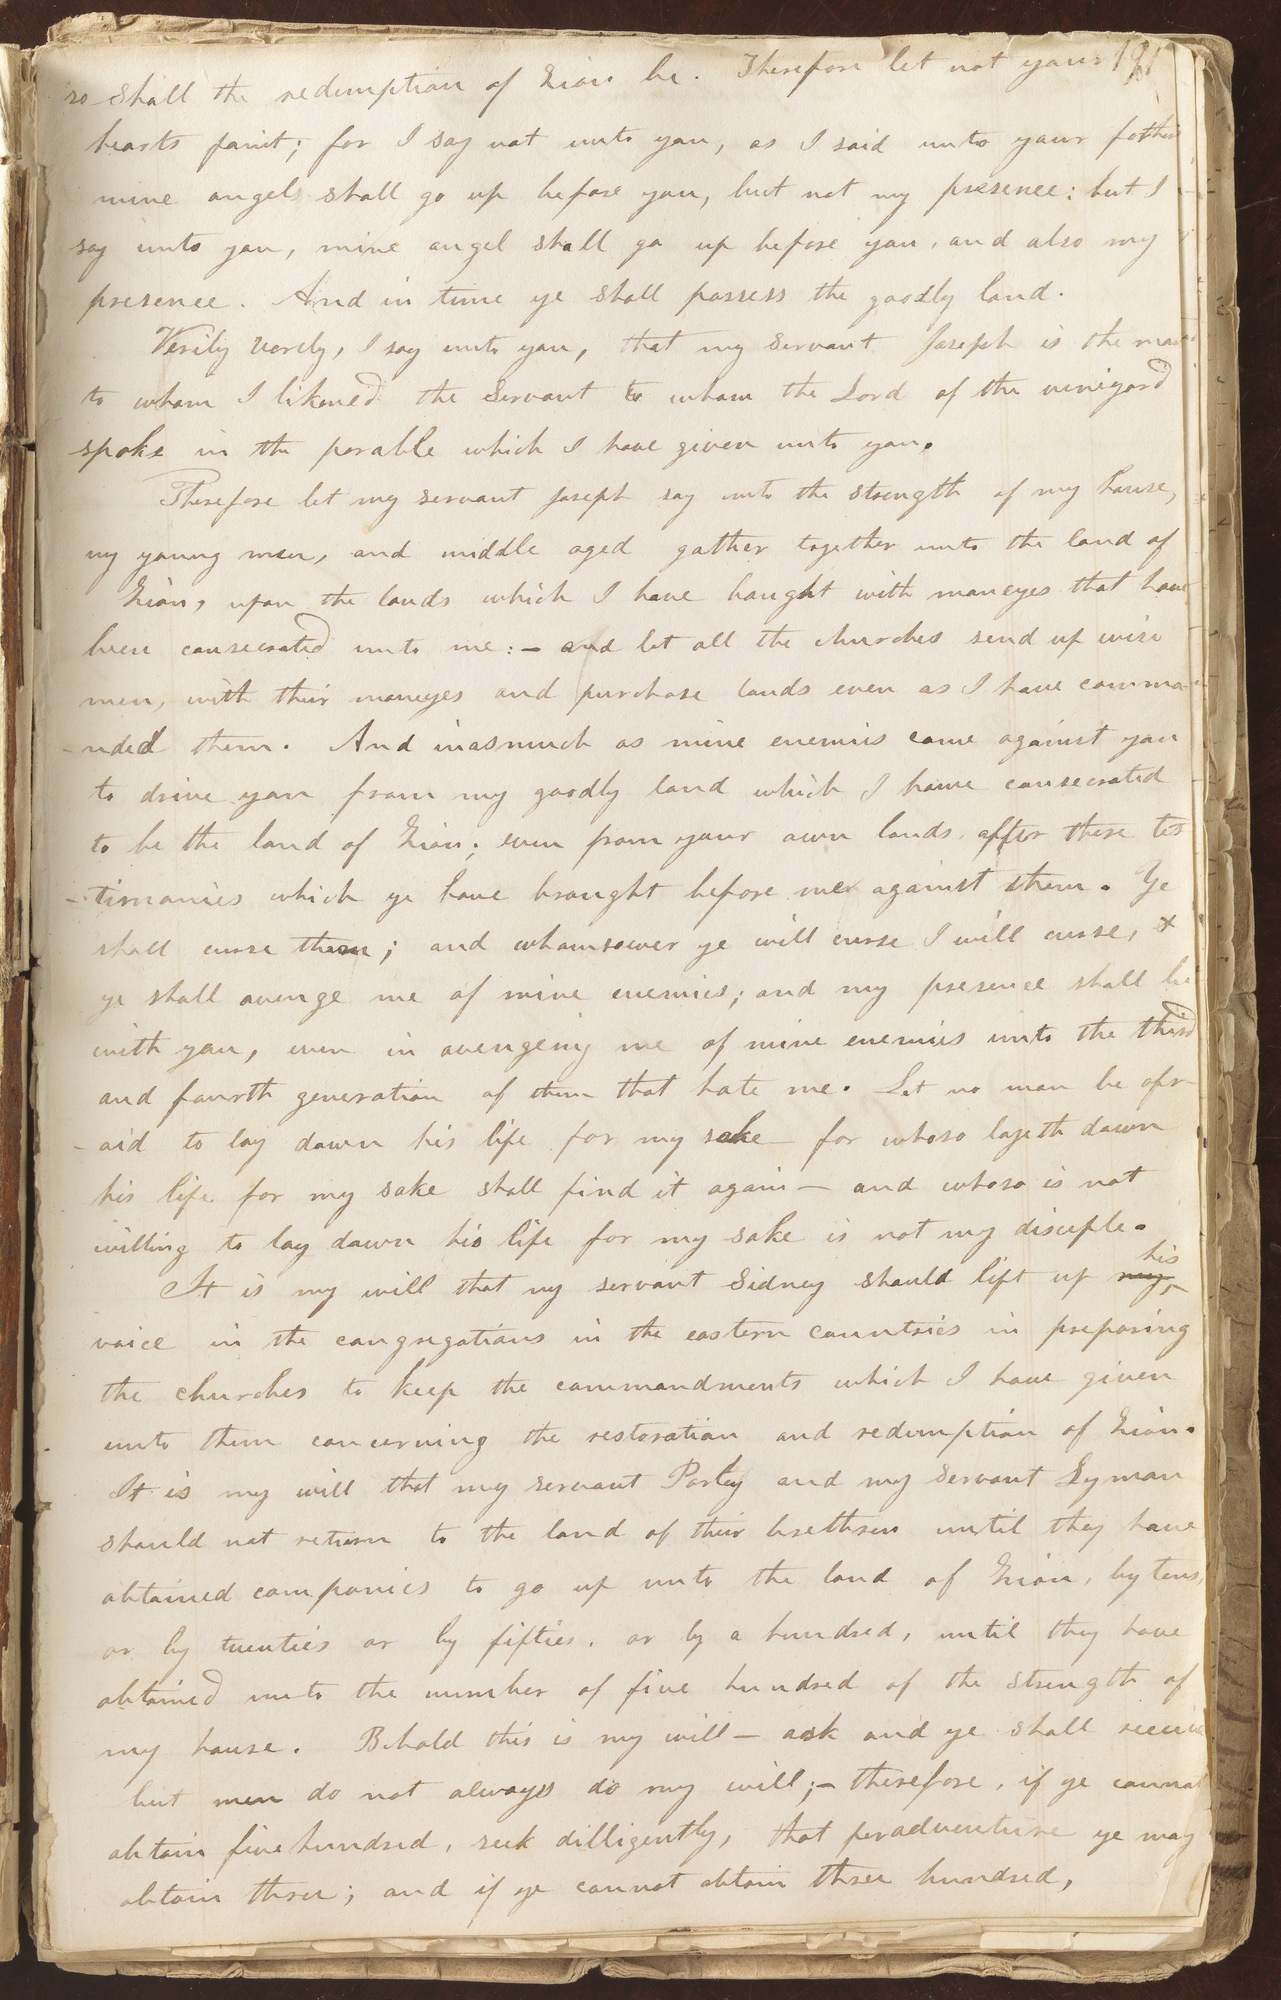 so shall the redemption of Zion be. Therefore let not your 191
hearts faint; for I say not unto you, as I said unto your fathers
mine angel shall go up before you, but not my presence: but I
say unto you, mine angel shall go up before you, and also my
presence. And in time ye shall possess the goodly land.
Verily Verily, I say unto you, that my servant Joseph is the man
to whom I likened the Servant to whom the Lord of the vineyard
spoke in the parable which I have given unto you.
Therefore let my servant Joseph say unto the strength of my house,
my young men, and middle aged gather together unto the land of
Zion, upon the lands which I have bought with moneyes that have
been consecrated unto me:— and let all the churches send up wise
men, with their moneyes and purchase lands even as I have comma-
-nded them. And inasmuch as mine enemies come against you
to drive you from my goodly land which I have consecrated
to be the land of Zion; even from your own lands after these tes
-timonies which ye have brought before me against them. Ye
shall curse them; and whomsoever ye will curse I will curse, &
ye shall avenge me of mine enemies; and my presence shall be
with you, even in avengeing me of mine enemies unto the third
and fourth generation of them that hate me. Let no man be afr-
-aid to lay down his life for my sake— for whoso layeth down
his life for my sake shall find it again— and whoso is not
willing to lay down his life for my sake is not my disciple.
It is my will that my servant Sidney should lift up my his
voice in the congregations in the eastern countries in preparing
the churches to keep the commandments which I have given
unto them concerning the restoration and redemption of Zion.
It is my will that my servant Parley and my servant Lyman
should not return to the land of their brethren until they have
obtained companies to go up unto the land of Zion, by tens,
or by twenties or by fifties, or by a hundred, until they have
obtained unto the number of five hundred of the strength of
my house. Behold this is my will— ask and ye shall receive
but men do not always do my will;— therefore, if ye cannot
obtain five hundred, seek dilligently, that peradventure ye may
obtain three; and if ye cannot obtain three hundred,